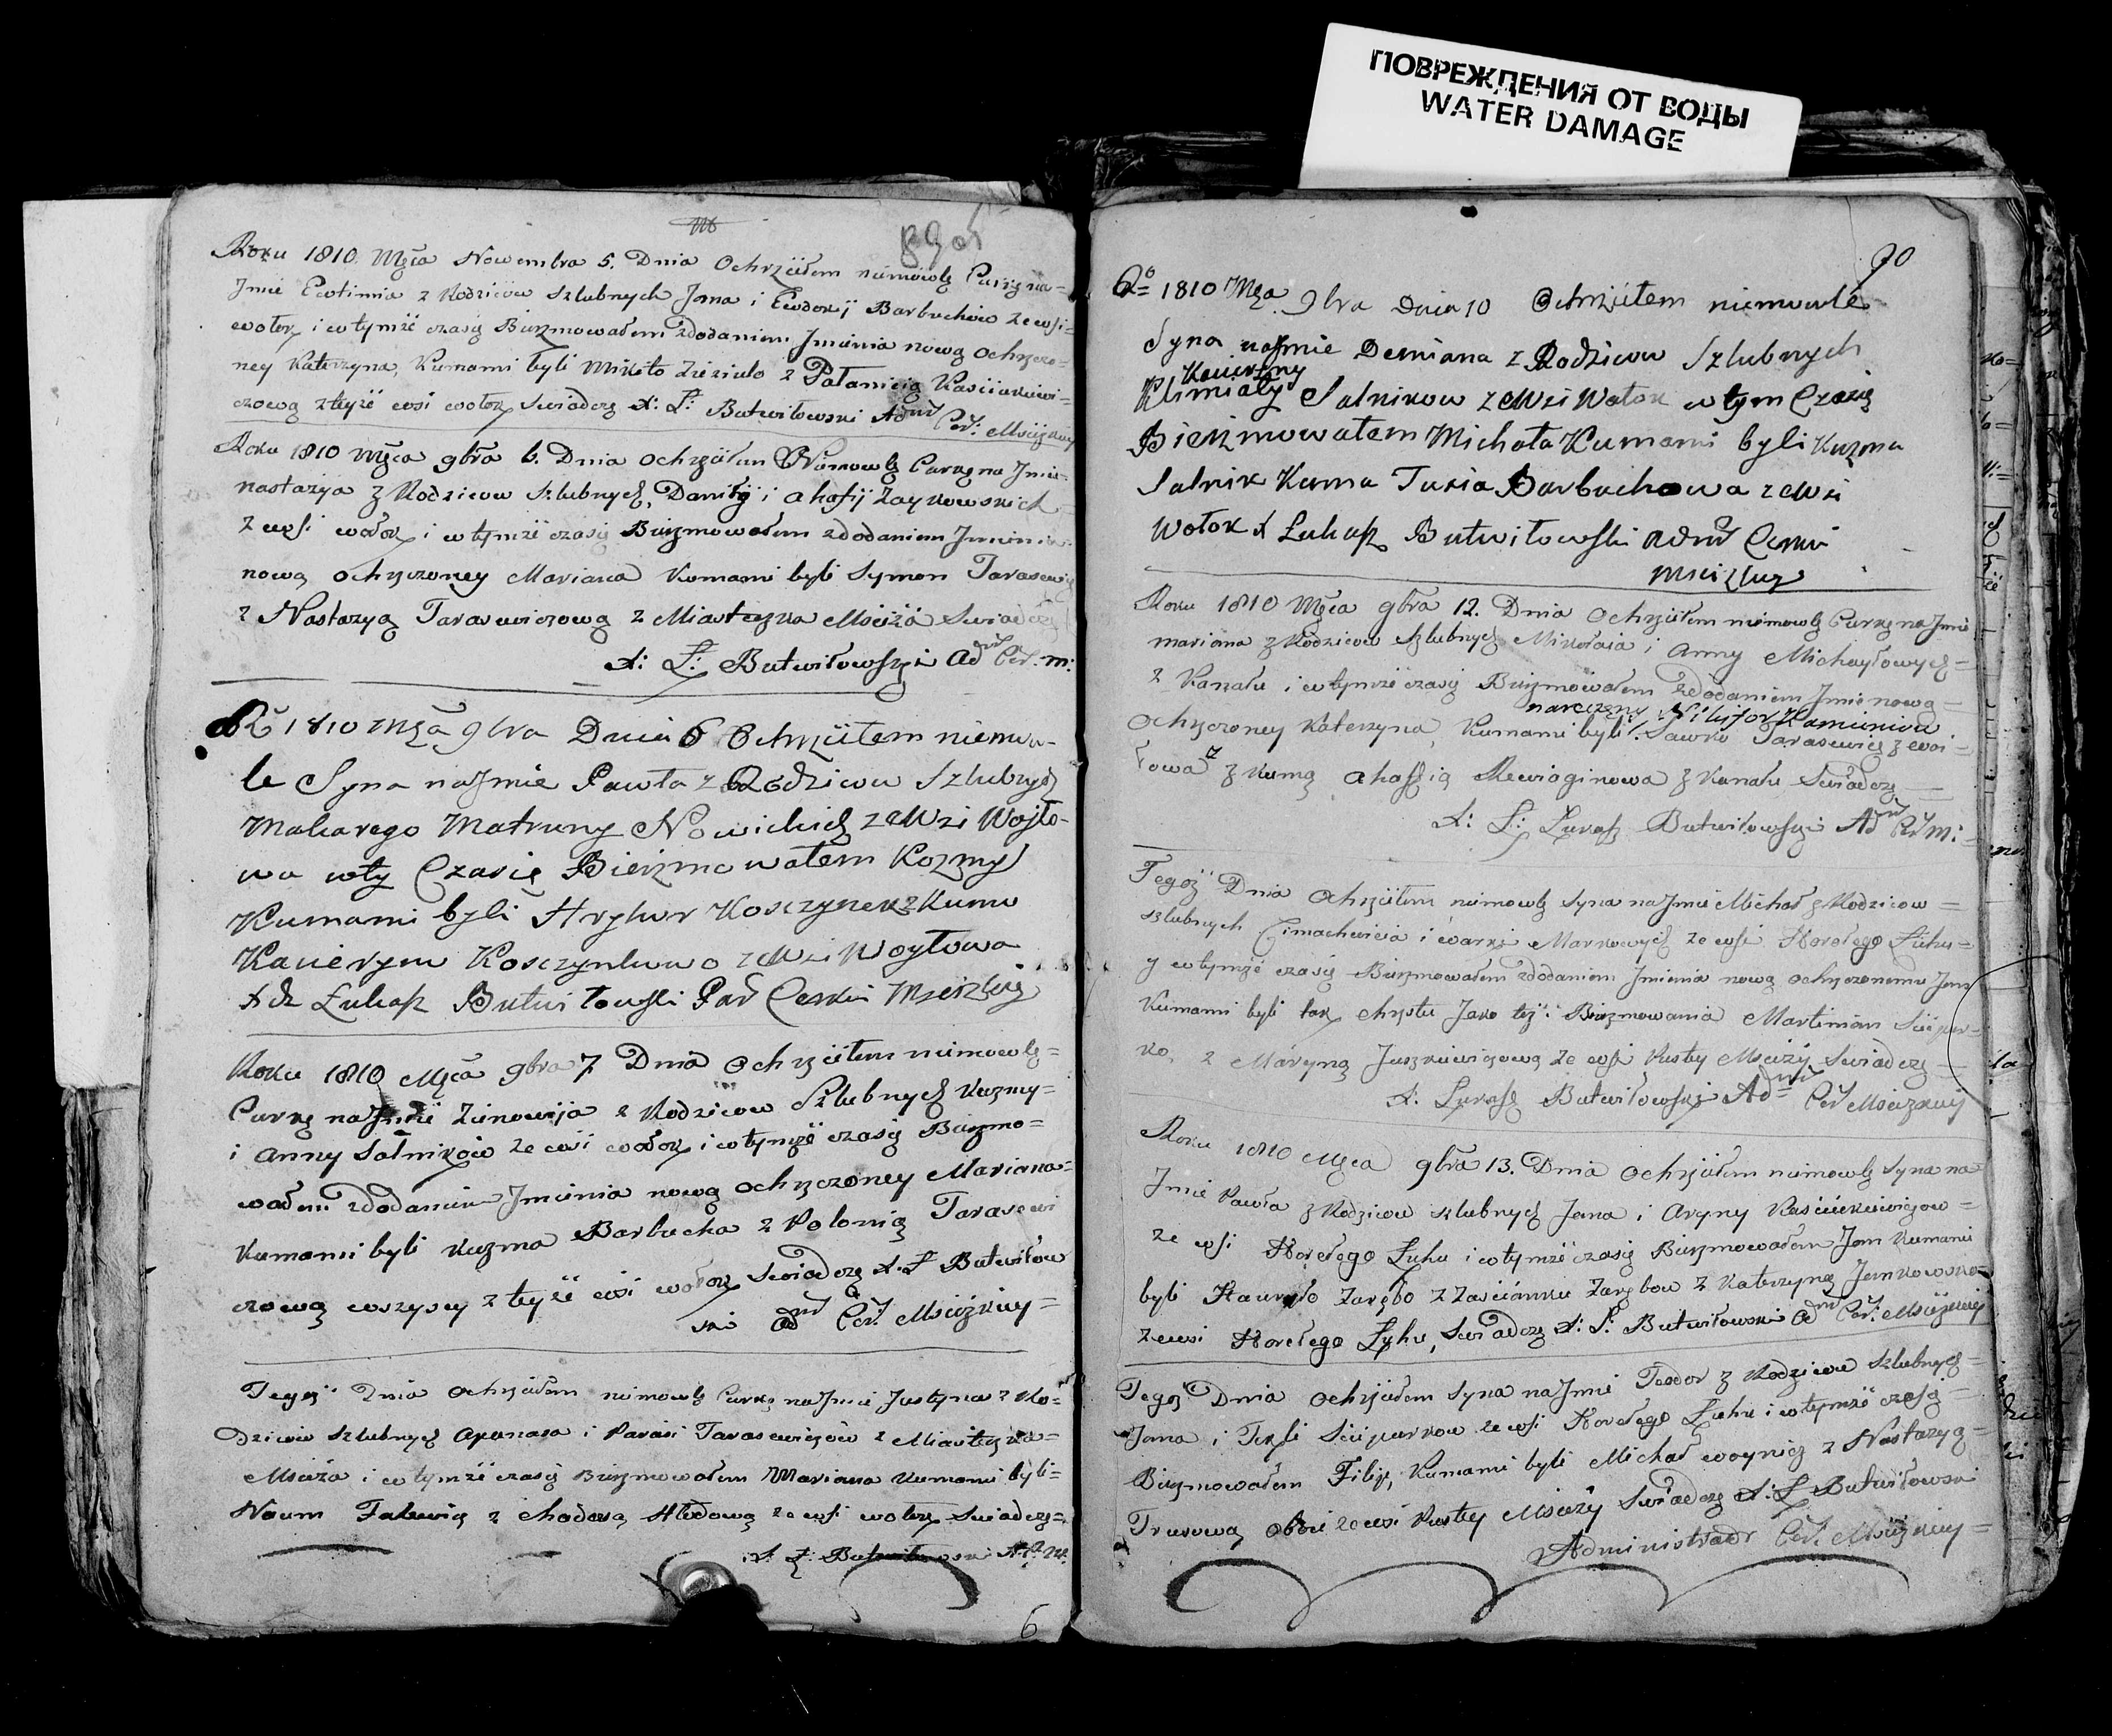 ПОВРЕЖДЕНИЯ ОТ ВОДЫ
WATER DAMAGE
Roku 1810 Mśca Nowembra 5. Dnia Ochrzciłem niemowlę Curkę na=
Imie Ewtimia z Rodzicow Szlubnych Jana i Ewdokij Barbuchow ze wsi=
wołok i w tymże czasię Bierzmowałem z dodaniem Imienia nowo ochrzczo=
ney Katerzyna, Kumami byli Mikito z Pałanieią
czową z teyże wsi wołok Swiadczę X: Ł: Butwiłowski Admr Cer: Mściżskiey
Roku 1810 Mśca 9bra 6. Dnia Ochrzciłem Niemowlę Curkę na Imie=
nastazya z Rodzicow Szlubnych, Daniły i ahafij Zaykowskich
z wsi wołok i w tymże czasię Bierzmowałem z dodaniem Imienia
nowo ochrzczoney Mariana Kumami byli Symon Tarasewicz
z Nastazyą Tarasewiczową z Miasteczka Mściża Swiadczę
X: Ł: Butwiłowski Admr Cer: M:
Rº 1810 Mśca 9bra Dnia 6 Ochrzciłem niemow-
le Syna na Imie Pawła z Rodzicow Szlubnych
Makarego Matruny Nowickich z Wsi Wojto-
wa w ty Czasię Bierzmowałem Kozmy
Kumami byli Hryhor Kosczynek z Kumo
Kosczynkowo z Wsi Woytowa
X Łukasz Butwiłowski Cerkwi Mścizkiey
Roku 1810 Mśca 9bra 7. Dnia Ochrzciłem niemowlę=
Curkę na Imie Zinowija z Rodzicow Szlubnych Kuzmy=
i Anny Sołnikow ze wsi wołok i w tymże czasię Bierzmo=
wałem z dodaniem Imienia nowo ochrzczoney Mariana=
Kumami byli Kuzma Barbucha z Polonią Tarasewi
czową wszyscy z teyże wsi wołok Swiadczę X: Ł Butwiłow
ski Admr Cer: Mściżkiey=
Tegoż Dnia Ochrzciłem niemowlę Curkę na Imie Justyna z Ro=
dzicow Szlubnych Apanasa i Parasi Tarasewiczow z Miasteczka=
Mściża i w tymże czasię Bierzmowałem Mariana Kumami byli=
Naum z Chadorą Hledową ze wsi wołok Swiadczę=
X: Ł: Butwiłowski A: C: M:
6
90
Rº 1810 Mśca 9bra Dnia 10 Ochrzciłem niemowle
Syna na Imie Demiana z Rodzicow Szlubnych
Salnikow z Wsi Wołok w tym Czasię
Bierzmowałem Michała Kumami byli Kuzma
Salnik Kuma Tukia Barbuchowa z Wsi
Wołok X Łukasz Butwiłowski Admr Cerkwi
Mścizkiey
Roku 1810 Mśca 9bra 12. Dnia Ochrzciłem niemowlę Curkę na Imie
mariana z Rodzicow Szlubnych Mikołaia i Anny Michayłowych=
z Kanału i w tymże czasię Bierzmowałem z dodaniem Imie nowo=
Ochrzczoney Katerzyna, Kumami byli Sawko Tarasewicz z woi=
towa z kumą ahafią z Kanału Swiadczę=
X: Ł: Łukasz Butwiłowski Admr Cer M:
Tegoż Dnia Ochrzciłem niemowlę Syna na Imie Michał z Rodzicow=
szlubnych i warki Markowych ze wsi Horełego Łuhu=
y w tymże czasię Bierzmowałem z dodaniem Imienia nowo ochrzczonemu Jan
Kumami byli tak chrztu Jako też i Bierzmowania Martinian
ko, z Maryną Juszkiewiczową ze wsi Pustey Mściży Swiadczę
X: Łukasz Butwiłowski Admr Cer Mściżkiey
Roku 1810 Mśca 9bra 13. Dnia Ochrzciłem niemowlę Syna na
Imie Pawła z Rodzicow szlubnych Jana i Aryny
ze wsi Horełego Łuhu i w tymże czasię Bierzmowałem Jan Kumami
byli Hauryło Zarębo z Zascianku Zarębow z Katerzyną Jankowsko=
ze wsi Horełego Łuhu, Swiadczę X: Ł: Butwiłowski Admr Cer: Mściżkiey
Tegoż Dnia Ochrzciłem Syna na Imie Teodor z Rodzicow Szlubnych=
Jana i Tekli ze wsi Horełego Łuhu i w tymże czasię=
Bierzmowałem Filip, Kumami byli Michał woynicz z Nastazyą=
Trusową oboie ze wsi Pustey Mściży Swiadczę X: Ł Butwiłowski
Administrator Cer: Mściżkiey=